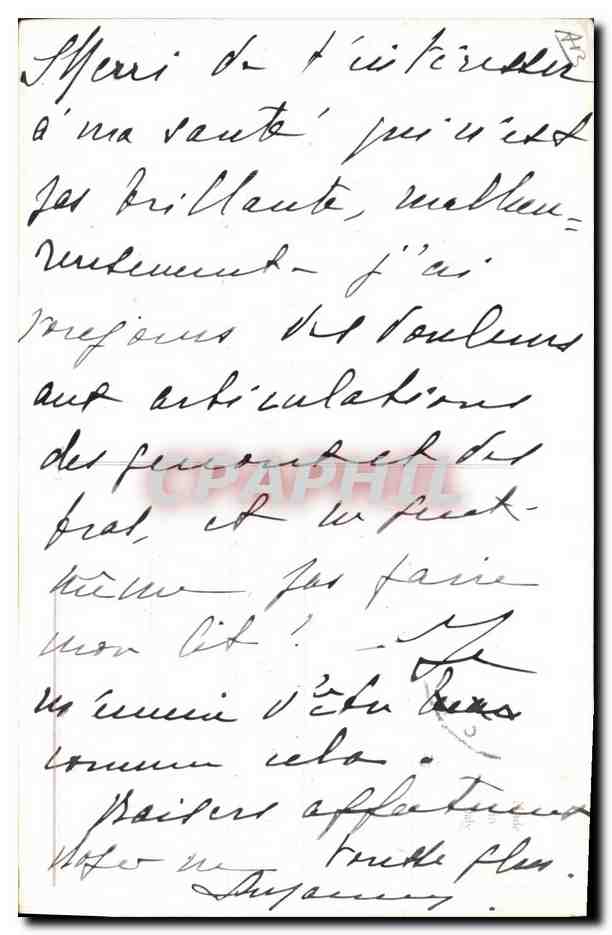 Merci de t'intéresser
à ma santé qui n'est
pas brillante, malheu=
reusement - j'ai
toujours des douleurs
aux articulations
des genoux et des
bras, et ne peut-
même pas faire
mon lit! - Je
m'ennuie d'être
comme cela.
Baisers affectueux
ne tousse plus.
Suzanne.
CPAPHIL